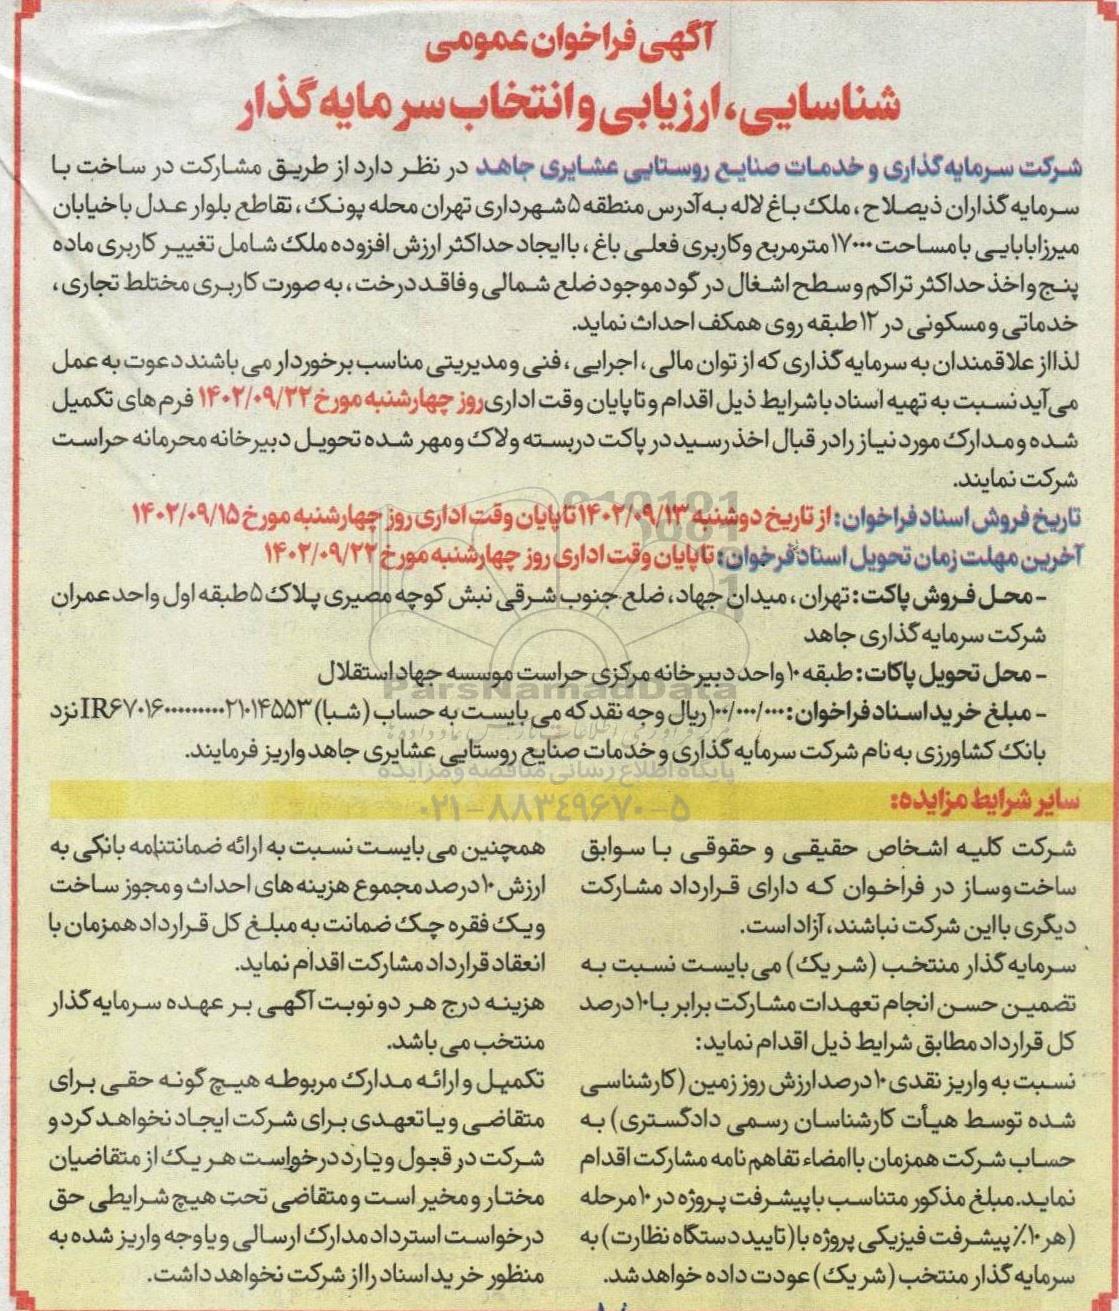 آگهی فراخوان عمومی
شناسایی، ارزیابی و انتخاب سرمایه گذار
شرکت سرمایه گذاری و خدمات صنایع روستایی عشایری جاهد در نظر دارد از طریق مشارکت در ساخت با
سرمایه گذاران ذیصلاح، ملک باغ لاله به آدرس منطقه ۵ شهرداری تهران محله پونک، تقاطع بلوار عدل با خیابان
میرزابابایی با مساحت ۱۷۰۰۰ مترمربع و کاربری فعلی باغ، با ایجاد حداکثر ارزش افزوده ملک شامل تغییر کاربری ماده
پنج و اخذ حداکثر تراکم و سطح اشغال در گود موجود ضلع شمالی و فاقد درخت، به صورت کاربری مختلط تجاری،
خدماتی و مسکونی در ۱۲ طبقه روی همکف احداث نماید.
لذا از علاقمندان به سرمایه گذاری که از توان مالی، اجرایی، فنی و مدیریتی مناسب برخوردار می باشند دعوت به عمل
می آید نسبت به تهیه اسناد با شرایط ذیل اقدام و تا پایان وقت اداری روز چهارشنبه مورخ ۱۴۰۲/۰۹/۲۲ فرم های تکمیل
شده و مدارک مورد نیاز را در قبال اخذ رسید در پاکت دربسته و لاک و مهر شده تحویل دبیرخانه محرمانه حراست
شرکت نمایند.
تاریخ فروش اسناد فراخوان: از تاریخ دوشنبه ۱۴۰۲/۰۹/۱۳ تا پایان وقت اداری روز چهارشنبه مورخ ۱۴۰۲/۰۹/۱۵
آخرین مهلت زمان تحویل اسناد فرخوان: تا پایان وقت اداری روز چهارشنبه مورخ ۱۴۰۲/۰۹/۲۲
- محل فروش پاکت: تهران، میدان جهاد، ضلع جنوب شرقی نبش کوچه مصیری پلاک ۵ طبقه اول واحد عمران
شرکت سرمایه گذاری جاهد
- محل تحویل پاکات: طبقه ۱۰ واحد دبیرخانه مرکزی حراست موسسه جهاد استقلال
- مبلغ خرید اسناد فراخوان: ۱۰۰/۰۰۰/۰۰۰ ریال وجه نقد که می بایست به حساب (شبا) نزد
بانک کشاورزی به نام شرکت سرمایه گذاری و خدمات صنایع روستایی عشایری جاهد واریز فرمایند.
ParsNamadData
پایگاه اطلاع رسانی مناقصه و مزایده
۰۲۱-۸۸۳۴۹۶۷۰-۵
سایر شرایط مزایده:
شرکت کلیه اشخاص حقیقی و حقوقی با سوابق
ساخت و ساز در فراخوان که دارای قرارداد مشارکت
دیگری با این شرکت نباشند، آزاد است.
سرمایه گذار منتخب (شریک) می بایست نسبت به
تضمین حسن انجام تعهدات مشارکت برابر با ۱۰ درصد
کل قرارداد مطابق شرایط ذیل اقدام نماید:
نسبت به واریز نقدی ۱۰ درصد ارزش روز زمین (کارشناسی
شده توسط هیأت کارشناسان رسمی دادگستری) به
حساب شرکت همزمان با امضاء تفاهم نامه مشارکت اقدام
نماید. مبلغ مذکور متناسب با پیشرفت پروژه در ۱۰ مرحله
(هر ۱۰٪ پیشرفت فیزیکی پروژه با (تایید دستگاه نظارت) به
سرمایه گذار منتخب (شریک) عودت داده خواهد شد.
همچنین می بایست نسبت به ارائه ضمانتنامه بانکی به
ارزش ۱۰ درصد مجموع هزینه های احداث و مجوز ساخت
و یک فقره چک ضمانت به مبلغ کل قرارداد همزمان با
انعقاد قرارداد مشارکت اقدام نماید.
هزینه درج هر دو نوبت آگهی بر عهده سرمایه گذار
منتخب می باشد.
تکمیل و ارائه مدارک مربوطه هیچ گونه حقی برای
متقاضی و یا تعهدی برای شرکت ایجاد نخواهد کرد و
شرکت در قبول و یا رد درخواست هر یک از متقاضیان
مختار و مخیر است و متقاضی تحت هیچ شرایطی حق
درخواست استرداد مدارک ارسالی و یا وجه واریز شده به
منظور خرید اسناد را از شرکت نخواهد داشت.